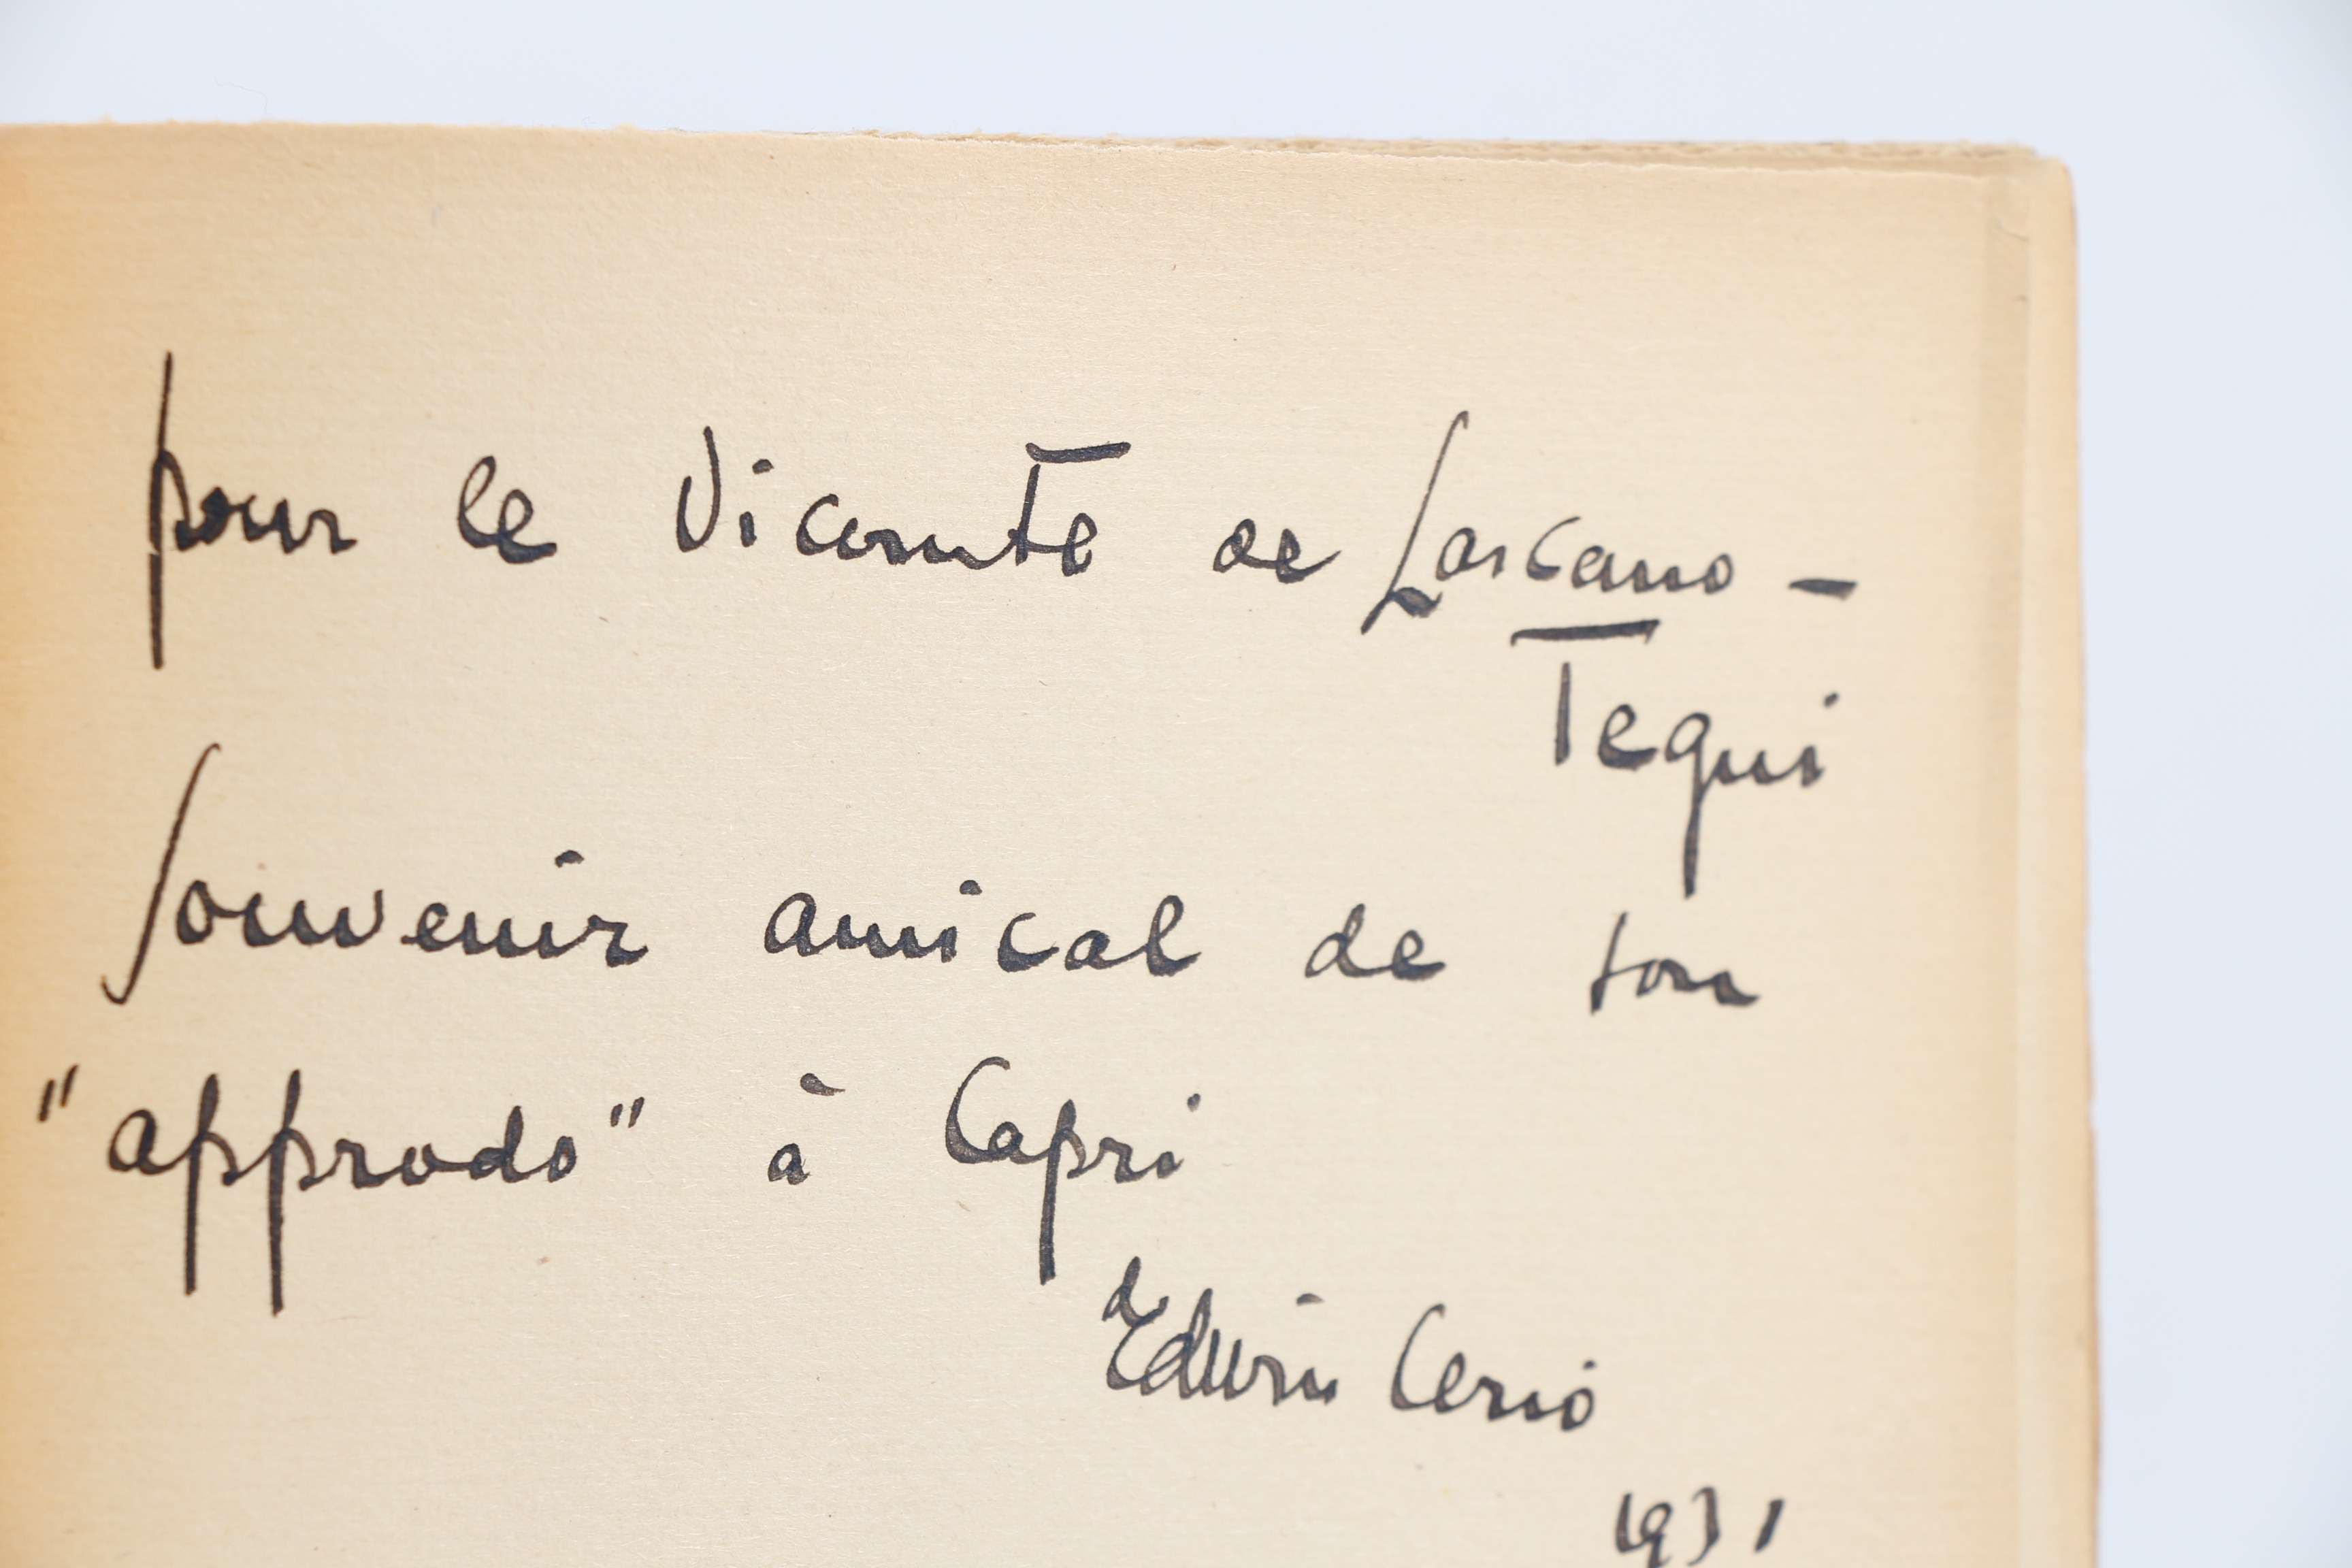 pour le Vicomte de Lascano –
Tegui
Souvenir amical de son
"approdo" à Capri
d'Edwin Cerio
1931